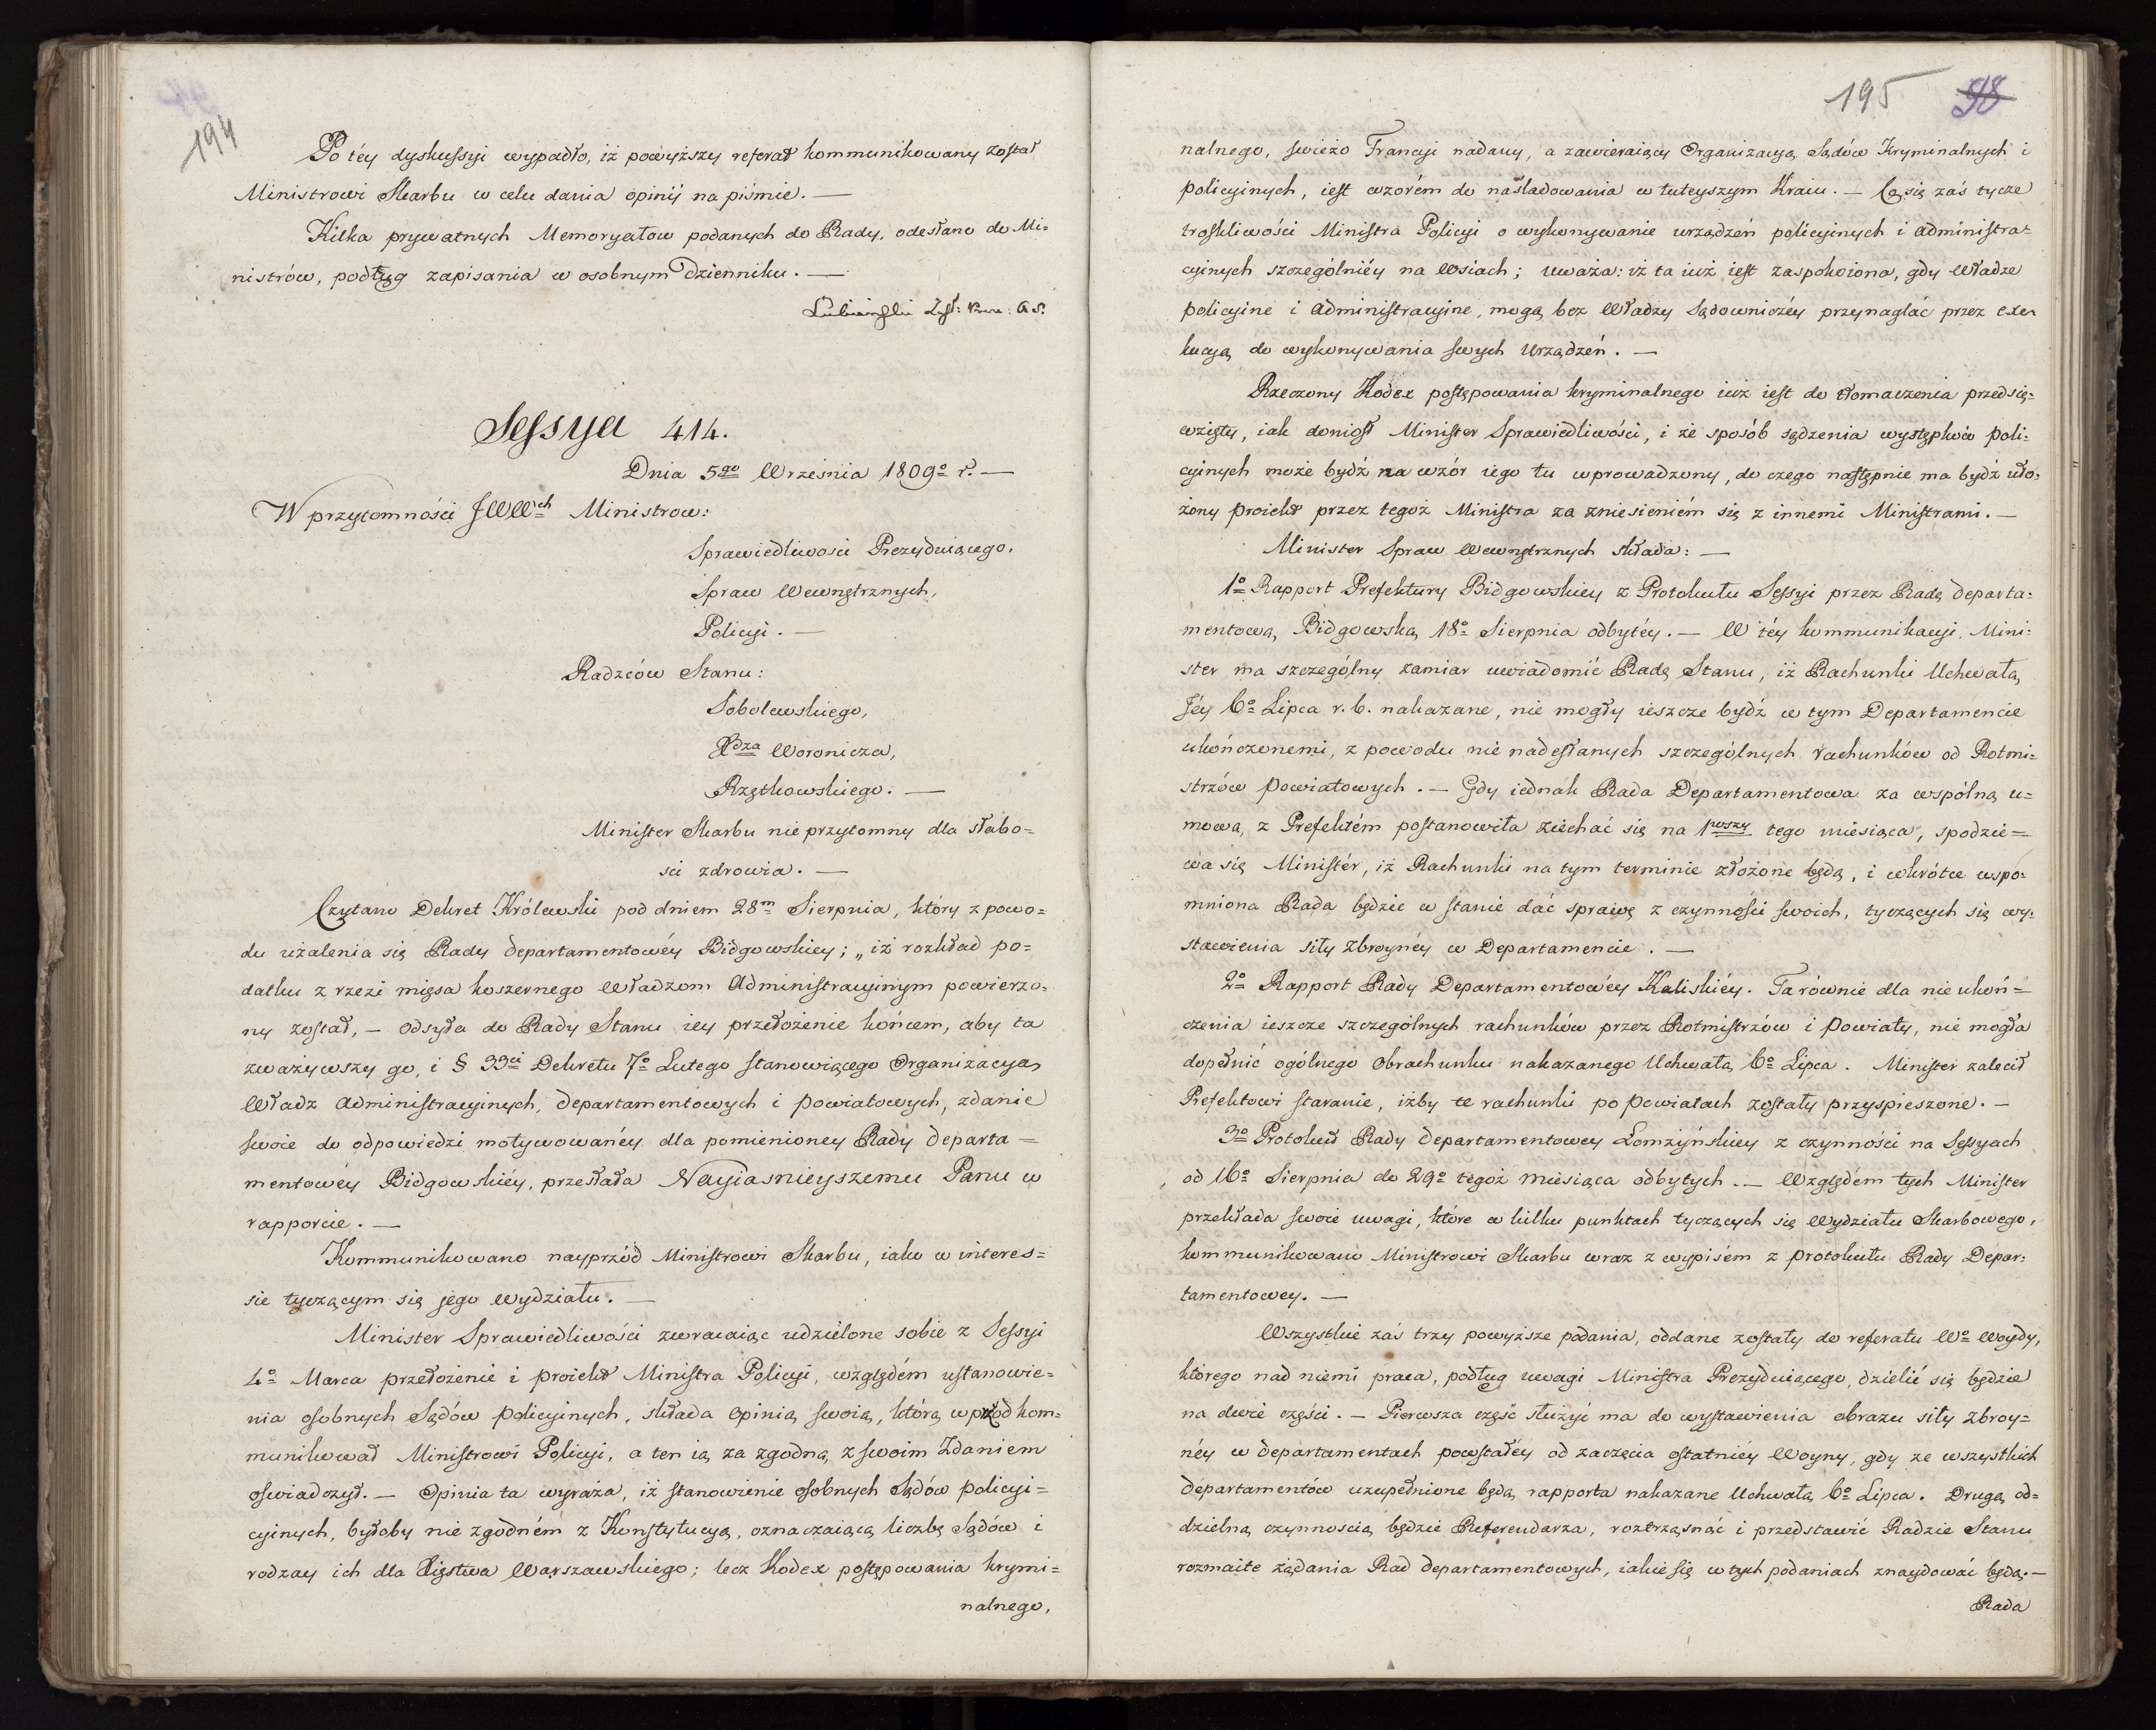 194
Po téy dyskussyi wypadło, iż powyższy referat kommunikowany został
Ministrowi Skarbu w celu dania opinij na piśmie. —
Kilka prywatnych Memoryałow podanych do Rady, odesłano do Mi=
nistrów, podług zapisania w osobnym Dzienniku. —
Sessya 414.
Dnia 5go Września 1809o r. —
W przytomności JWWch Ministrow:
Sprawiedliwosci Prezyduiącego,
Spraw Wewnętrznych,
Policyi. —
Radzców Stanu:
Sobolewskiego,
Xdza Woronicza,
Rzętkowskiego. —
Minister Skarbu nieprzytomny dla słabo=
sci zdrowia. —
Czytano Dekret Królewski pod dniem 28m Sierpnia, który z powo=
du użalenia się Rady departamentowéy Bidgowskiey; „iż rozkład po=
datku z rzezi mięsa koszernego Władzom Administracyinym powierzo=
ny został, — odsyła do Rady Stanu iey przełożenie końcem, aby ta
zważywszy go, i § 33ci Dekretu 7o Lutego stanowiącego Organizacyą
Władz Administracyinych, departamentowych i powiatowych, zdanie
swoie do odpowiedzi motywowanéy dla pomienioney Rady departa=
mentowéy Bidgowskiéy, przesłała Nayiasnieyszemu Panu w
rapporcie. —
Kommunikowano nayprzód Ministrowi Skarbu, iako w interes=
sie tyczącym się jego wydziału. —
Minister Sprawiedliwości zwracaiąc udzielone sobie z Sessyi
4o Marca przełożenie i proiekt Ministra Policyi, względém ustanowie=
nia osobnych Sądów policyinych, składa opinią swoią, którą wprzód kom=
munikował Ministrowi Policyi, a ten ią za zgodną z swoim Zdaniem
oswiadczył. — Opinia ta wyraża, iż stanowienie osobnych Sądów policyi=
cyinych, byłoby nie zgodném z Konstytucyą, oznaczaiącą liczbę Sądów i
rodzay ich dla Xięstwa Warszawskiego; lecz Kodex postępowania krymi=
nalnego,
195 98
nalnego, swieżo Francyi nadany, a zawieraiący Organizacyą Sądów Kryminalnych i
policyinych, iest wzorém do naśladowania w tuteyszym Kraiu. — Co się zaś tycze
troskliwości Ministra Policyi o wykonywanie urządzeń policyinych i administra=
cyinych szczególniéy na Wsiach; uważa: iż ta iuż iest zaspokoiona, gdy Władze
policyine i administracyine, mogą bez Władzy Sądowniczéy przynaglać przez exe=
kucyą do wykonywania swych Urządzeń. —
Rzeczony Kodex postępowania kryminalnego iuż iest do tłomaczenia przedsię=
wzięty, iak doniosł Minister Sprawiedliwości, i że sposób sądzenia występków poli=
cyinych może bydź na wzór iego tu wprowadzony, do czego następnie ma bydź uło=
żony proiekt przez tegoż Ministra za zniesieniém się z innemi Ministrami. —
Minister Spraw Wewnętrznych składa: —
1o Rapport Prefektury Bidgowskiey z Protokułu Sessyi przez Radę departa=
mentową Bidgowską 18o Sierpnia odbytéy. — W téy kommunikacyi, Mini=
ster ma szczególny zamiar uwiadomić Radę Stanu, iż Rachunki Uchwałą
Jéy 6o Lipca r. b. nakazane, nie mogły ieszcze bydź w tym Departamencie
ukończonemi, z powodu nie nadesłanych szczególnych rachunków od Rotmi=
strzów Powiatowych. — Gdy iednak Rada Departamentowa za wspólną u=
mową z Prefektém postanowiła ziechać się na 1wszy tego miesiąca, spodzie=
wa się Ministér, iż Rachunki na tym terminie złożone będą, i wkrótce wspo=
mniona Rada będzie w stanie dać sprawę z czynności swoich, tyczących się wy=
stawienia siły zbroynéy w Departamencie. —
2o Rapport Rady Departamentowéy Kaliskiéy. Ta równie dla nie ukoń=
czenia ieszcze szczególnych rachunków przez Rotmistrzów i Powiaty, nie mogła
dopełnić ogólnego Obrachunku nakazanego Uchwałą 6o Lipca. Minister zalecił
Prefektowi staranie, iżby te rachunki po powiatach zostały przyspieszone. —
3o Protokuł Rady departamentowey Łomżyńskiey z czynności na Sessyach
od 16o Sierpnia do 29o tegoż miesiąca odbytych. — Względém tych Minister
przekłada swoie uwagi, które w kilku punktach tyczących się Wydziału Skarbowego,
kommunikowano Ministrowi Skarbu wraz z wypisém z protokułu Rady Depar=
tamentowey. —
Wszystkie zaś trzy powyższe podania, oddane zostały do referatu Wo Woydy,
którego nad niemi praca, podług uwagi Ministra Prezyduiącego, dzielić się będzie
na dwie części. — Pierwsza część służyć ma do wystawienia obrazu siły zbroy=
néy w departamentach powstałéy od zaczęcia ostatniéy Woyny, gdy ze wszystkich
departamentów uzupełnione będą rapporta nakazane Uchwałą 6o Lipca. Drugą od=
dzielną czynnoscią będzie Referendarza, roztrząsnąć i przedstawić Radzie Stanu
rozmaite żądania Rad departamentowych, iakie się w tych podaniach znaydować będą. —
Rada